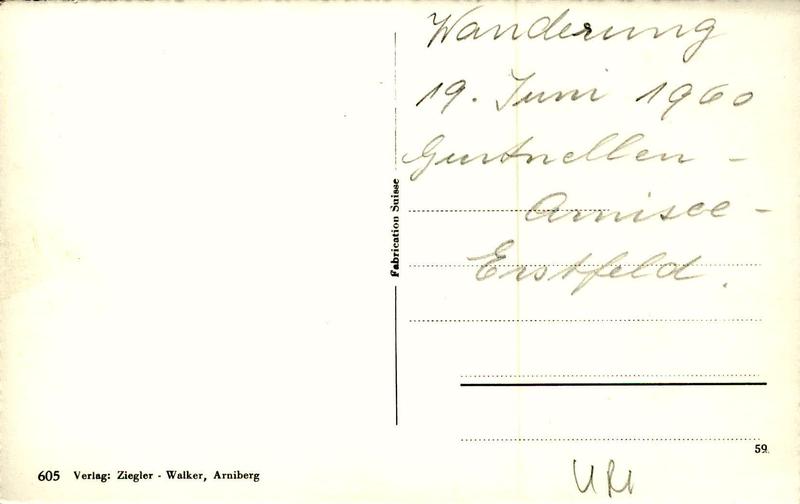 Wanderung
19. Juni 1960
Gurtnellen -
Arnisee -
Erstfeld.
Fabrication Suisse
59.
605 Verlag: Ziegler - Walker, Arniberg
URI